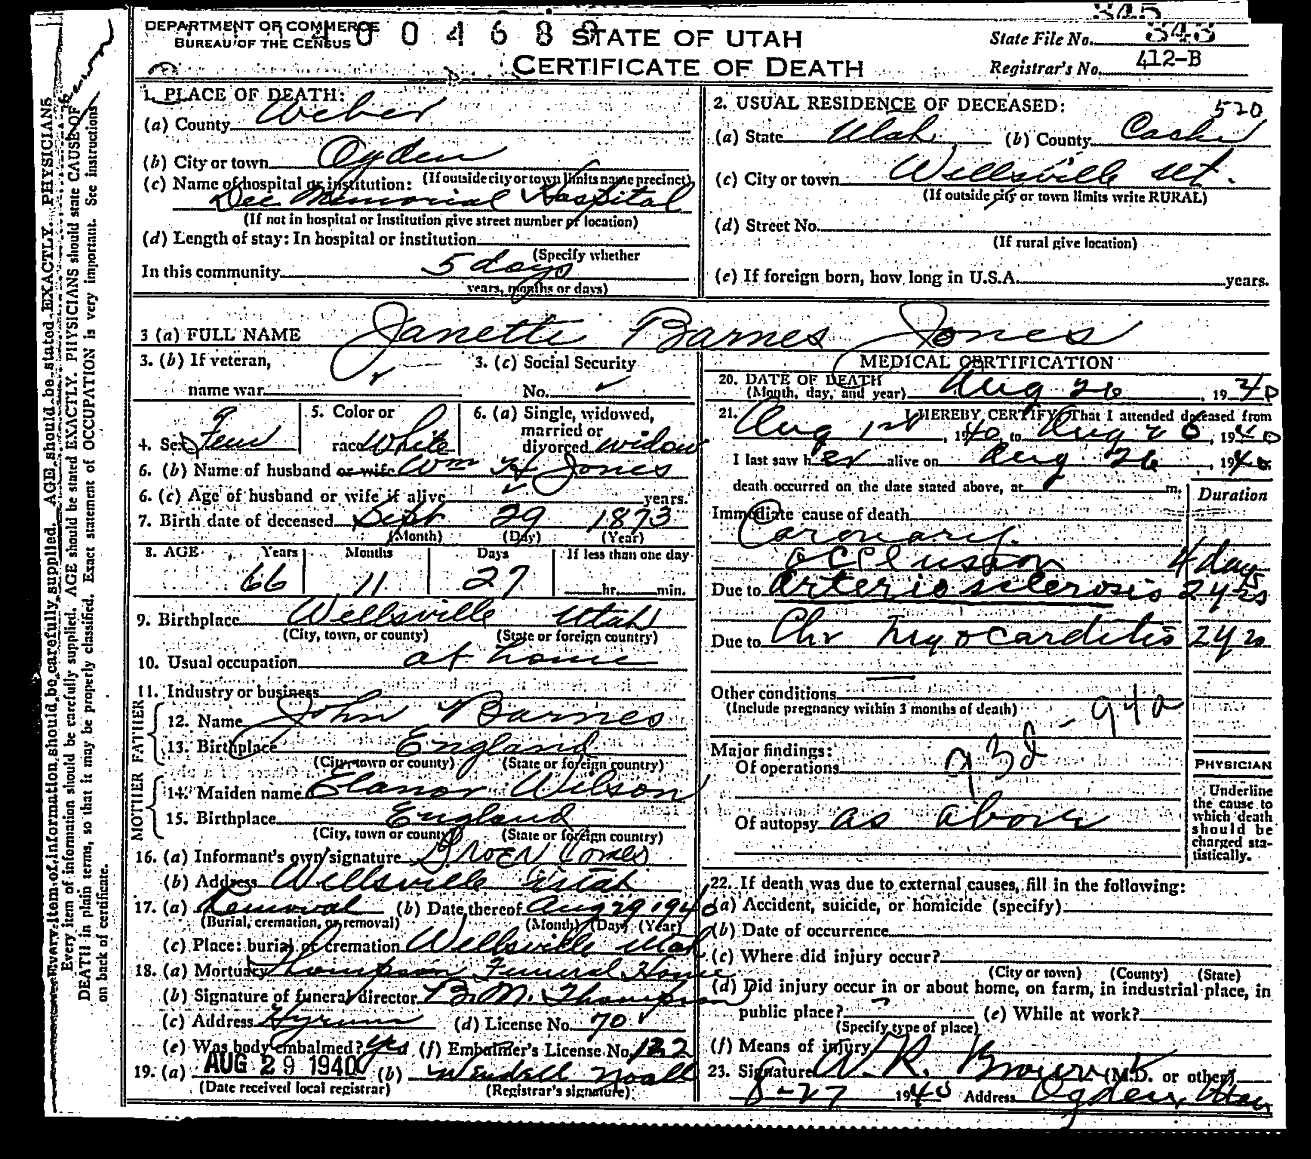 DEPARTMENT OF COMMERCE
BUREAU OF THE CENSUS
STATE OF UTAH
CERTIFICATE OF DEATH
State File No. 343
Registrar's No. 412-B
1. PLACE OF DEATH:
(a) County Weber
(b) City or town Ogden
(If outside city or town limits name precinct)
(c) Name of hospital or institution:
Dee Memorial Hospital
(If not in hospital or institution give street number or location)
(d) Length of stay: In hospital or institution
(Specify whether
In this community 5 days
years, months or days)
2. USUAL RESIDENCE OF DECEASED: 520
(a) State Utah, (b) County Cache
(c) City or town Wellsville Ut.
(If outside city or town limits write RURAL)
(d) Street No.
(If rural give location)
(e) If foreign born, how long in U.S.A. years.
3 (a) FULL NAME Janette Barnes Jones
3. (b) If veteran,
name war
3. (c) Social Security
No.
4. Sex Fem
5. Color or
race White
6. (a) Single, widowed,
married or
divorced widow
6. (b) Name of husband or wife Wm H Jones
6. (c) Age of husband or wife if alive years.
7. Birth date of deceased Sept 29 1873
(Month) (Day) (Year)
8. AGE Years Months Days If less than one day
66 11 27 hr. min.
9. Birthplace Wellsville Utah
(City, town, or county) (State or foreign country)
10. Usual occupation at home
11. Industry or business
FATHER
12. Name John Barnes
13. Birthplace England
(City, town or county) (State or foreign country)
MOTHER
14. Maiden name Elanor Wilson
15. Birthplace England
(City, town or county) (State or foreign country)
16. (a) Informant's own signature
(b) Address Wellsville Utah
17. (a) Removal (b) Date thereof Aug 29 1940
(Burial, cremation, or removal) (Month) (Day) (Year)
(c) Place: burial or cremation Wellsville Utah
18. (a) Mortuary Thompson Funeral Home
(b) Signature of funeral director B. M. Thompson
(c) Address Hyrum (d) License No. 70
(e) Was body embalmed? Yes (f) Embalmer's License No. 122
19. (a) AUG 29 1940 (b) Wendell Noall
(Date received local registrar) (Registrar's signature)
MEDICAL CERTIFICATION
20. DATE OF DEATH
(Month, day, and year) Aug 26, 1940
21. I HEREBY CERTIFY, That I attended deceased from
Aug 1st, 1940 to Aug 26, 1940
I last saw her alive on Aug 26, 1940
death occurred on the date stated above, at m.
Duration
Immediate cause of death
Coronary
occlusion 4 days
Due to arteriosclerosis 2 yrs
Due to Chr Myocarditis 2 yrs
Other conditions
(Include pregnancy within 3 months of death)
94a
Major findings:
Of operations 93d
Of autopsy as above
PHYSICIAN
Underline
the cause to
which death
should be
charged sta-
tistically.
22. If death was due to external causes, fill in the following:
(a) Accident, suicide, or homicide (specify)
(b) Date of occurrence
(c) Where did injury occur?
(City or town) (County) (State)
(d) Did injury occur in or about home, on farm, in industrial place, in
public place? (e) While at work?
(Specify type of place)
(f) Means of injury
23. Signature W. R. (M.D. or other)
8-27 1940 Address Ogden, Utah
Every item of information should be carefully supplied. AGE should be stated EXACTLY. PHYSICIANS should state CAUSE OF
DEATH in plain terms, so that it may be properly classified. Exact statement of OCCUPATION is very important. See instructions
on back of certificate.